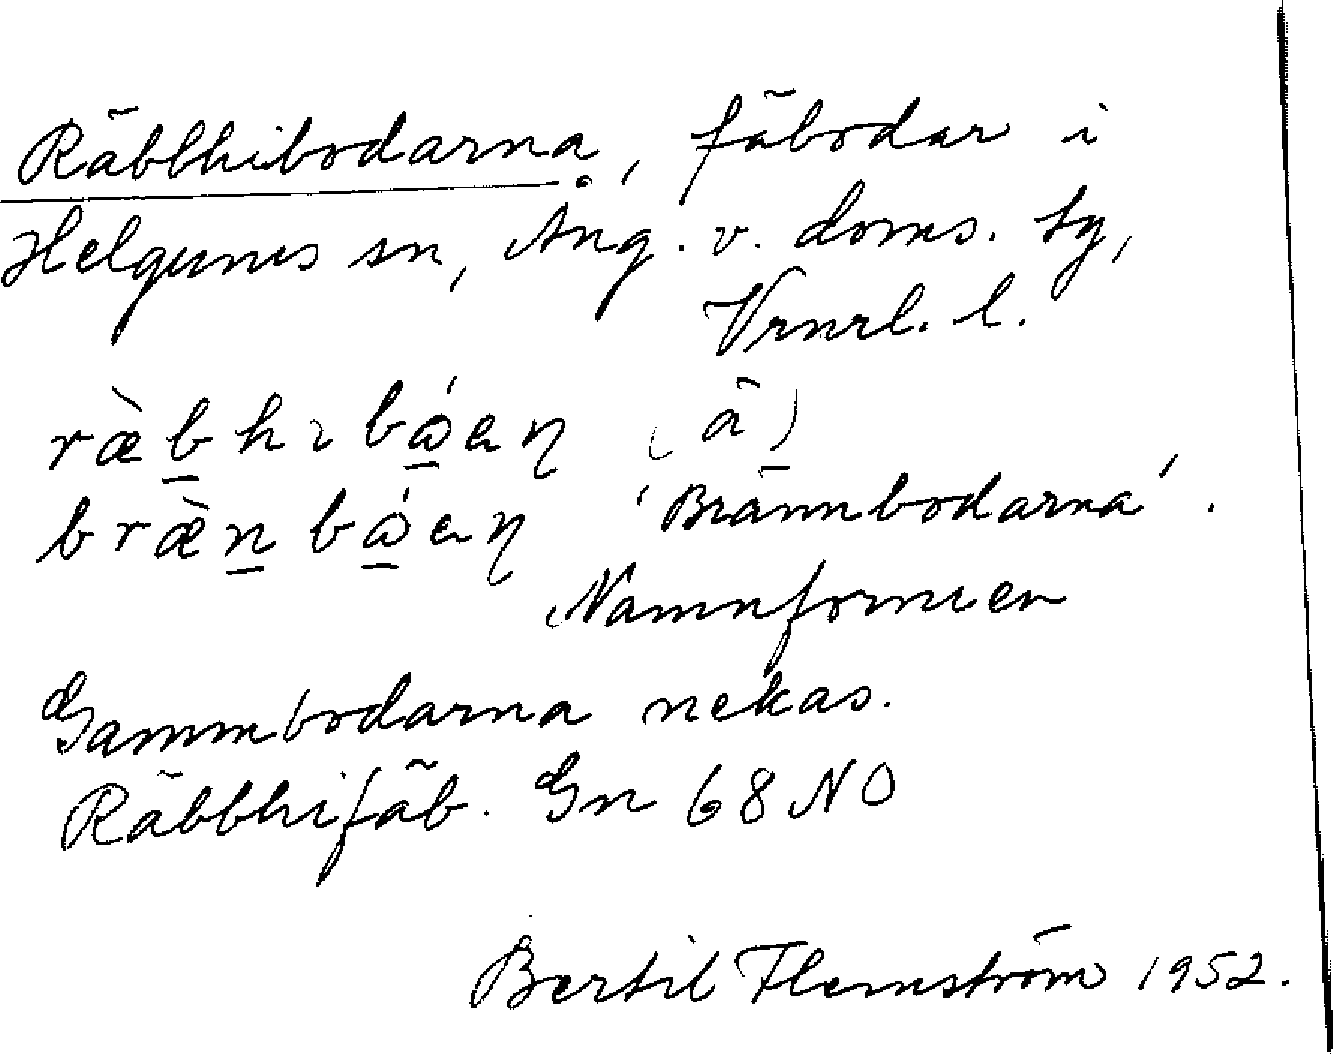 Räbbhibodarna, fäbodar i
Helgums sn, Ång. v. doms. tg,
Vrnrl. l.
(ä)
'Brännbodarna'.
Namnformen
Gammbodarna nekas.
Räbbhifäb. Gn 68 NO
Bertil Flemström 1952.